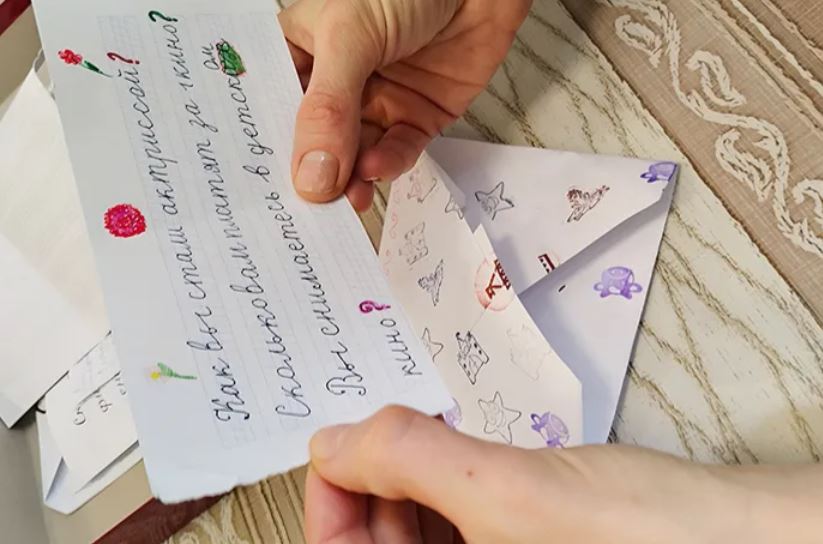 Как вы стали актриссой?
Сколько вам платят за 1 кино?
Вы снимаетесь в детском
кино?